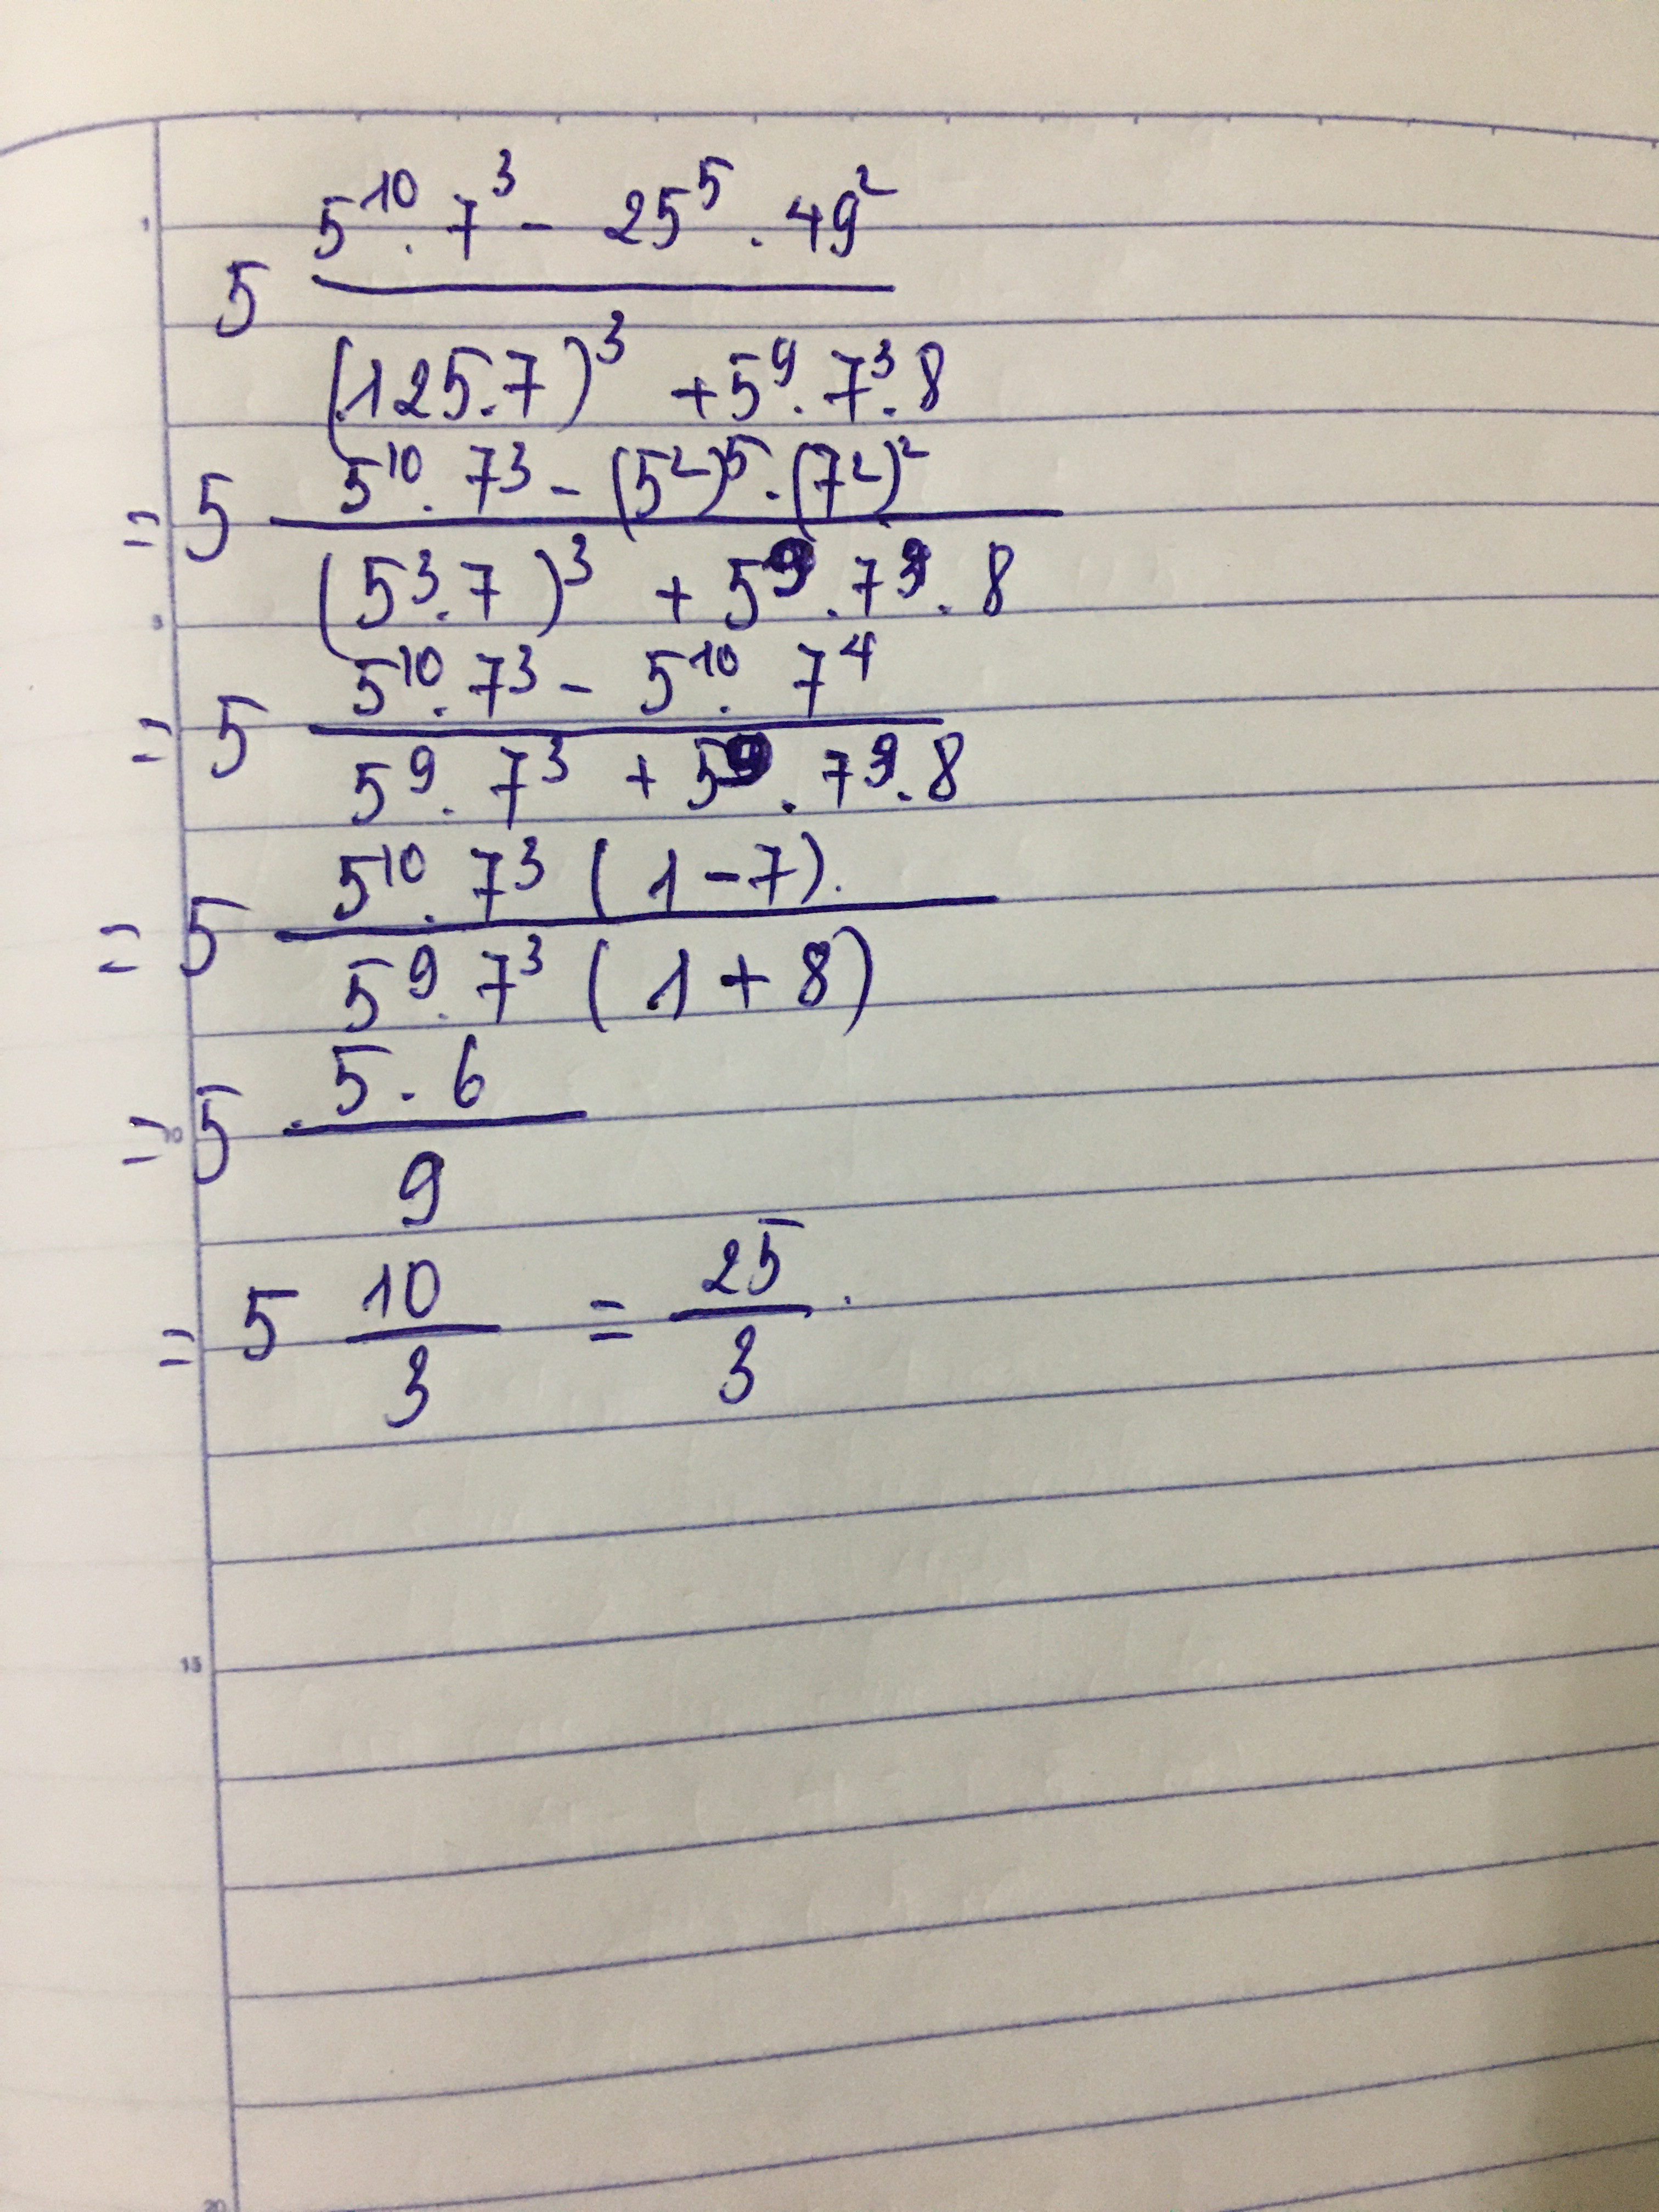 5 (5^10 . 7^3 - 25^5 . 49^2) / ((125.7)^3 + 5^9 . 7^3 . 8)
= 5 (5^10 . 7^3 - (5^2)^5 . (7^2)^2) / ((5^3 . 7)^3 + 5^9 . 7^3 . 8)
= 5 (5^10 . 7^3 - 5^10 . 7^4) / (5^9 . 7^3 + 5^9 . 7^3 . 8)
= 5 (5^10 . 7^3 (1 - 7)) / (5^9 . 7^3 (1 + 8))
= 5 (5 . 6) / 9
= 5 10/3 = 25/3 .
1
5
10
15
20